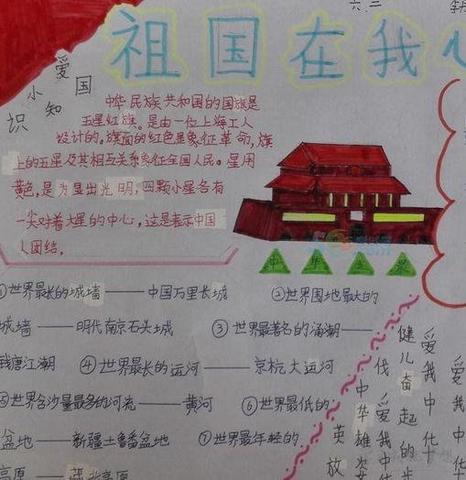 六.三
祖国在我
爱国
小知
识
中华民族共和国的国旗是
五星红旗。是由一位上海工人
设计的。旗面的红色象征革命,旗
上的五星及其相互关系象征全国人民。星用
黄色,是为显出光明,四颗小星各有
一尖对着大星的中心,这是表示中国
人团结。
①世界最长的城墙——中国万里长城
②世界围地最大的
城墙——明代南京石头城
③世界最著名的涌潮——
钱唐江潮
④世界最长的运河——京杭大运河
⑤世界含沙量最多的河流——黄河
⑥世界最低的
盆地——新疆土鲁番盆地
⑦世界最年轻的
高原
爱我中华
爱我中
健儿奋起的步
伐
中华雄姿
英
放